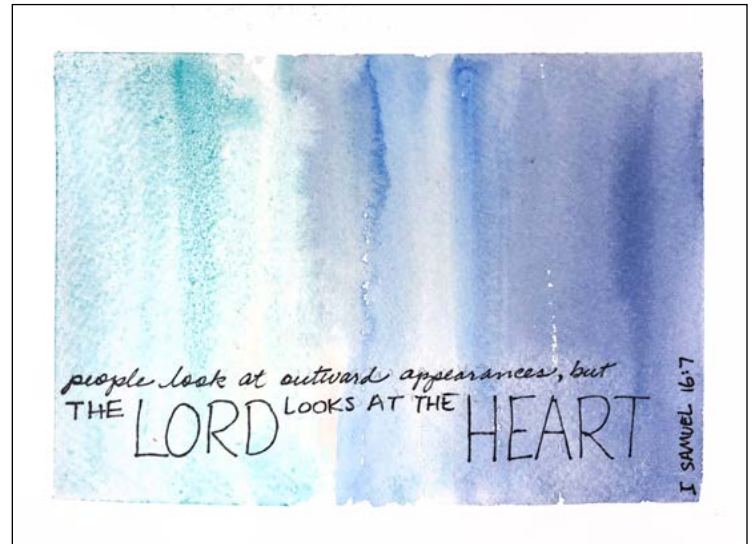 people look at outward appearances, but
THE LORD LOOKS AT THE HEART
I SAMUEL 16:7